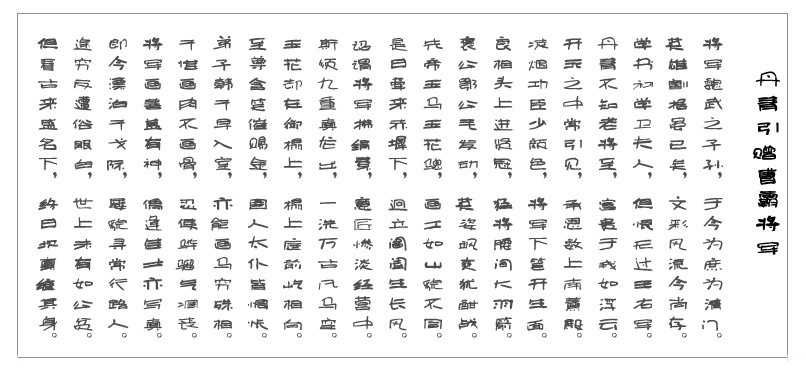 丹青引赠曹霸将军
将军魏武之子孙，于今为庶为清门。
英雄割据虽已矣，文彩风流今尚存。
学书初学卫夫人，但恨无过王右军。
丹青不知老将至，富贵于我如浮云。
开元之中常引见，承恩数上南薰殿。
凌烟功臣少颜色，将军下笔开生面。
良相头上进贤冠，猛将腰间大羽箭。
褒公鄂公毛发动，英姿飒爽犹酣战。
先帝天马玉花骢，画工如山貌不同。
是日牵来赤墀下，迥立阊阖生长风。
诏谓将军拂绢素，意匠惨淡经营中。
斯须九重真龙出，一洗万古凡马空。
玉花却在御榻上，榻上庭前屹相向。
至尊含笑催赐金，圉人太仆皆惆怅。
弟子韩干早入室，亦能画马穷殊相。
干惟画肉不画骨，忍使骅骝气凋丧。
将军画善盖有神，偶逢佳士亦写真。
即今漂泊干戈际，屡貌寻常行路人。
途穷反遭俗眼白，世上未有如公贫。
但看古来盛名下，终日坎壈缠其身。